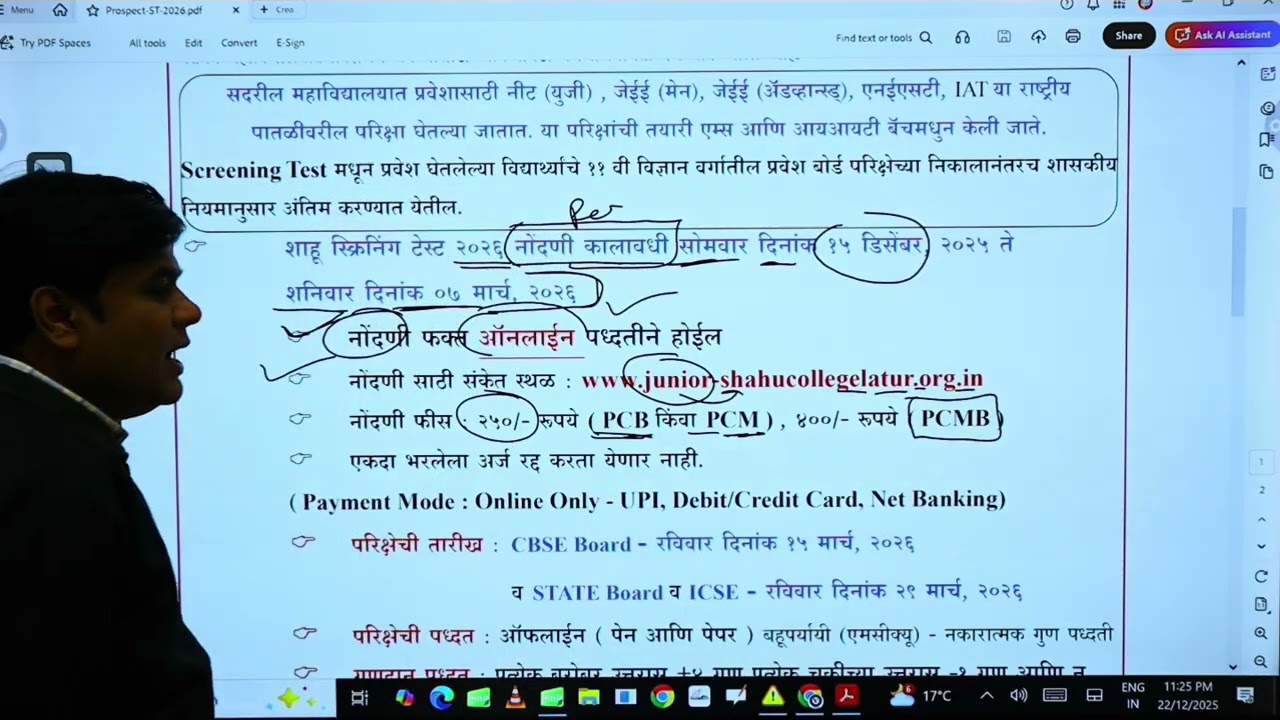 Menu
Prospect-ST-2026.pdf
×
+ Crea
Try PDF Spaces
All tools
Edit
Convert
E-Sign
Find text or tools
Share
Ask AI Assistant
सदरील महाविद्यालयात प्रवेशासाठी नीट (युजी) , जेईई (मेन), जेईई (ॲडव्हान्स्ड्), एनईएसटी, IAT या राष्ट्रीय
पातळीवरील परिक्षा घेतल्या जातात. या परिक्षांची तयारी एम्स आणि आयआयटी बॅचमधुन केली जाते.
Screening Test मधून प्रवेश घेतलेल्या विद्यार्थ्यांचे ११ वी विज्ञान वर्गातील प्रवेश बोर्ड परिक्षेच्या निकालानंतरच शासकीय
नियमानुसार अंतिम करण्यात येतील.
शाहू स्क्रिनिंग टेस्ट २०२६ नोंदणी कालावधी सोमवार दिनांक १५ डिसेंबर, २०२५ ते
शनिवार दिनांक ०७ मार्च, २०२६
नोंदणी फक्त ऑनलाईन पध्दतीने होईल
नोंदणी साठी संकेत स्थळ : www.junior-shahucollegelatur.org.in
नोंदणी फीस : २५०/- रूपये ( PCB किंवा PCM ) , ४००/- रूपये ( PCMB )
एकदा भरलेला अर्ज रद्द करता येणार नाही.
( Payment Mode : Online Only - UPI, Debit/Credit Card, Net Banking)
परिक्षेची तारीख : CBSE Board – रविवार दिनांक १५ मार्च, २०२६
व STATE Board व ICSE – रविवार दिनांक २९ मार्च, २०२६
परिक्षेची पध्दत : ऑफलाईन ( पेन आणि पेपर ) बहूपर्यायी (एमसीक्यू) - नकारात्मक गुण पध्दती
गुणदान पध्दत : प्रत्येक बरोबर उत्तरास +४ गुण प्रत्येक चुकीच्या उत्तरास -१ गुण आणि न
1
2
17°C
ENG
IN
11:25 PM
22/12/2025